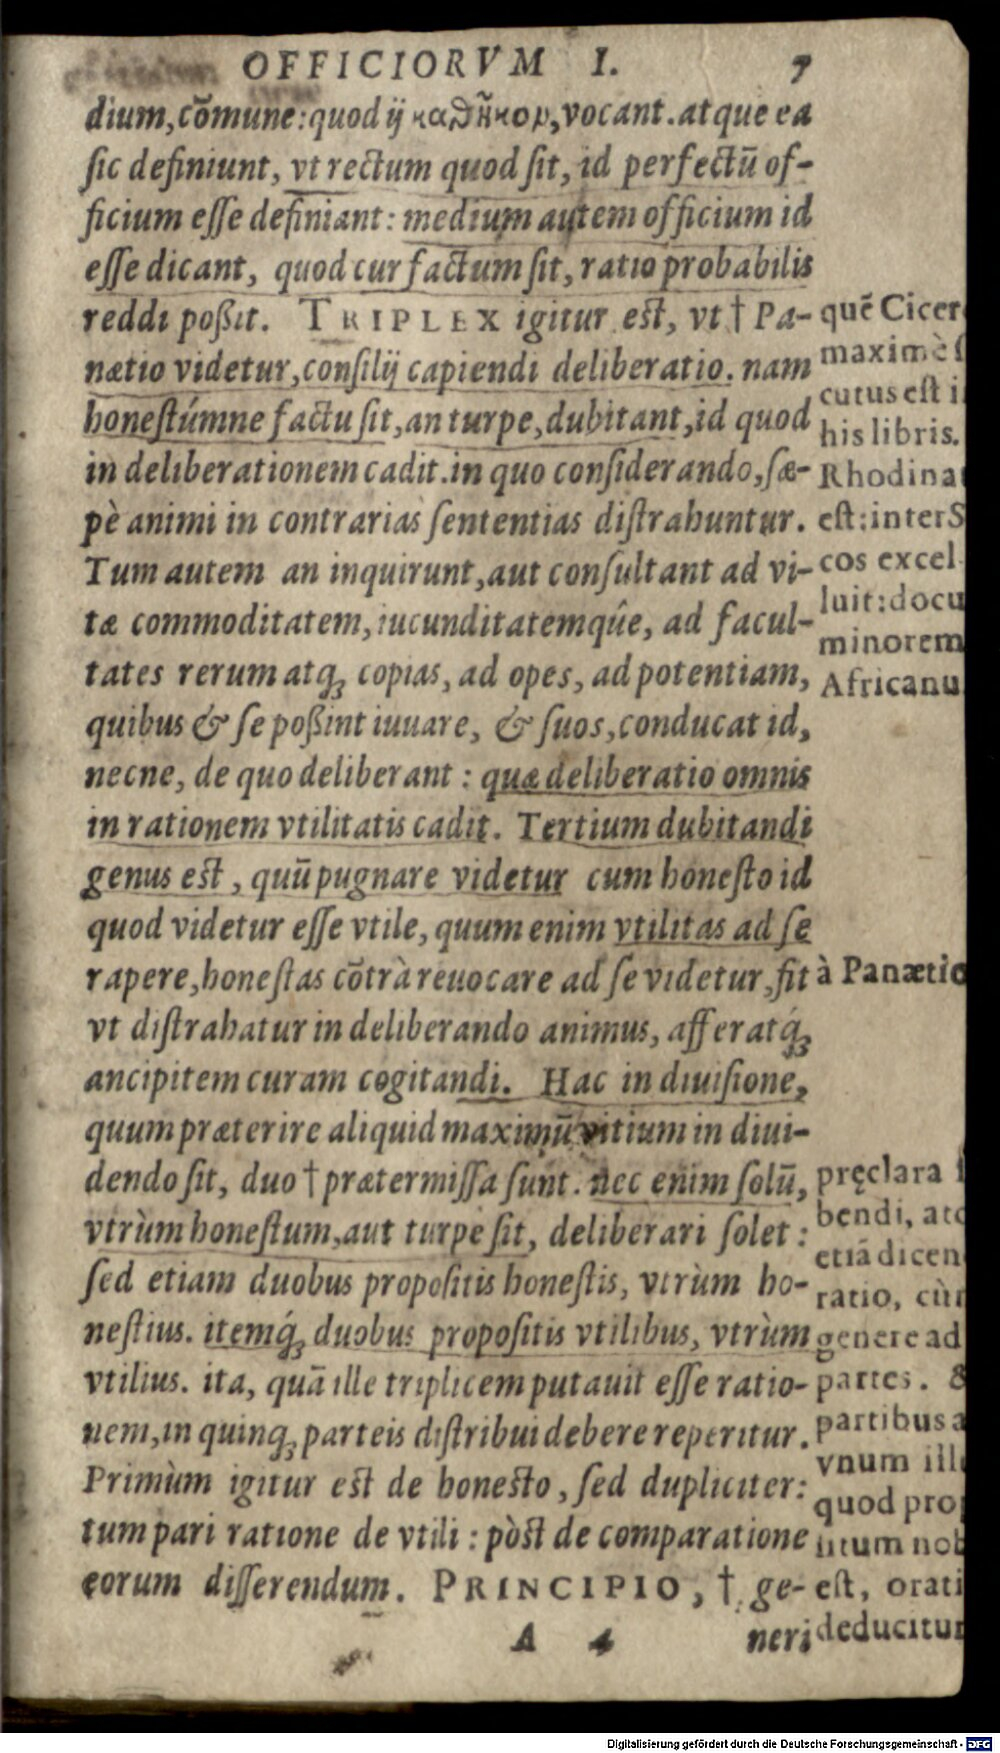 OFFICIORVM I. 7
dium, cõmune: quod ij καθῆκον, vocant. atque ea
sic definiunt, vt rectum quod sit, id perfectũ of-
ficium esse definiant: medium autem officium id
esse dicant, quod cur factum sit, ratio probabilis
reddi poßit. TRIPLEX igitur est, vt † Pa-
nætio videtur, consilij capiendi deliberatio. nam
honestúmne factu sit, an turpe, dubitant, id quod
in deliberationem cadit. in quo considerando, sæ-
pè animi in contrarias sententias distrahuntur.
Tum autem an inquirunt, aut consultant ad vi-
tæ commoditatem, iucunditatemqûe, ad facul-
tates rerum atq; copias, ad opes, ad potentiam,
quibus & se poßint iuuare, & suos, conducat id,
necne, de quo deliberant: quæ deliberatio omnis
in rationem vtilitatis cadit. Tertium dubitandi
genus est, quũ pugnare videtur cum honesto id
quod videtur esse vtile, quum enim vtilitas ad se
rapere, honestas cõtrà reuocare ad se videtur, fit
vt distrahatur in deliberando animus, afferatq́;
ancipitem curam cogitandi. Hac in diuisione,
quum præterire aliquid maximũ vitium in diui-
dendo sit, duo † prætermissa sunt. nec enim solũ,
vtrùm honestum, aut turpe sit, deliberari solet:
sed etiam duobus propositis honestis, vtrùm ho-
nestius. itemq́; duobus propositis vtilibus, vtrùm
vtilius. ita, quã ille triplicem putauit esse ratio-
nem, in quinq; parteis distribui debere reperitur.
Primùm igitur est de honesto, sed dupliciter:
tum pari ratione de vtili: pòst de comparatione
eorum disserendum. PRINCIPIO, † ge-
A 4 neri
quẽ Cicer
maximè s
cutus est i
his libris.
Rhodina
est: inter S
cos excel
luit: docu
minorem
Africanu
à Panætio
pręclara
bendi, atq
etiã dicen
ratio, cùm
genere ad
partes. &
partibus a
vnum ill
quod pro
situm nob
est, orati
deducitur
Digitalisierung gefördert durch die Deutsche Forschungsgemeinschaft - DFG